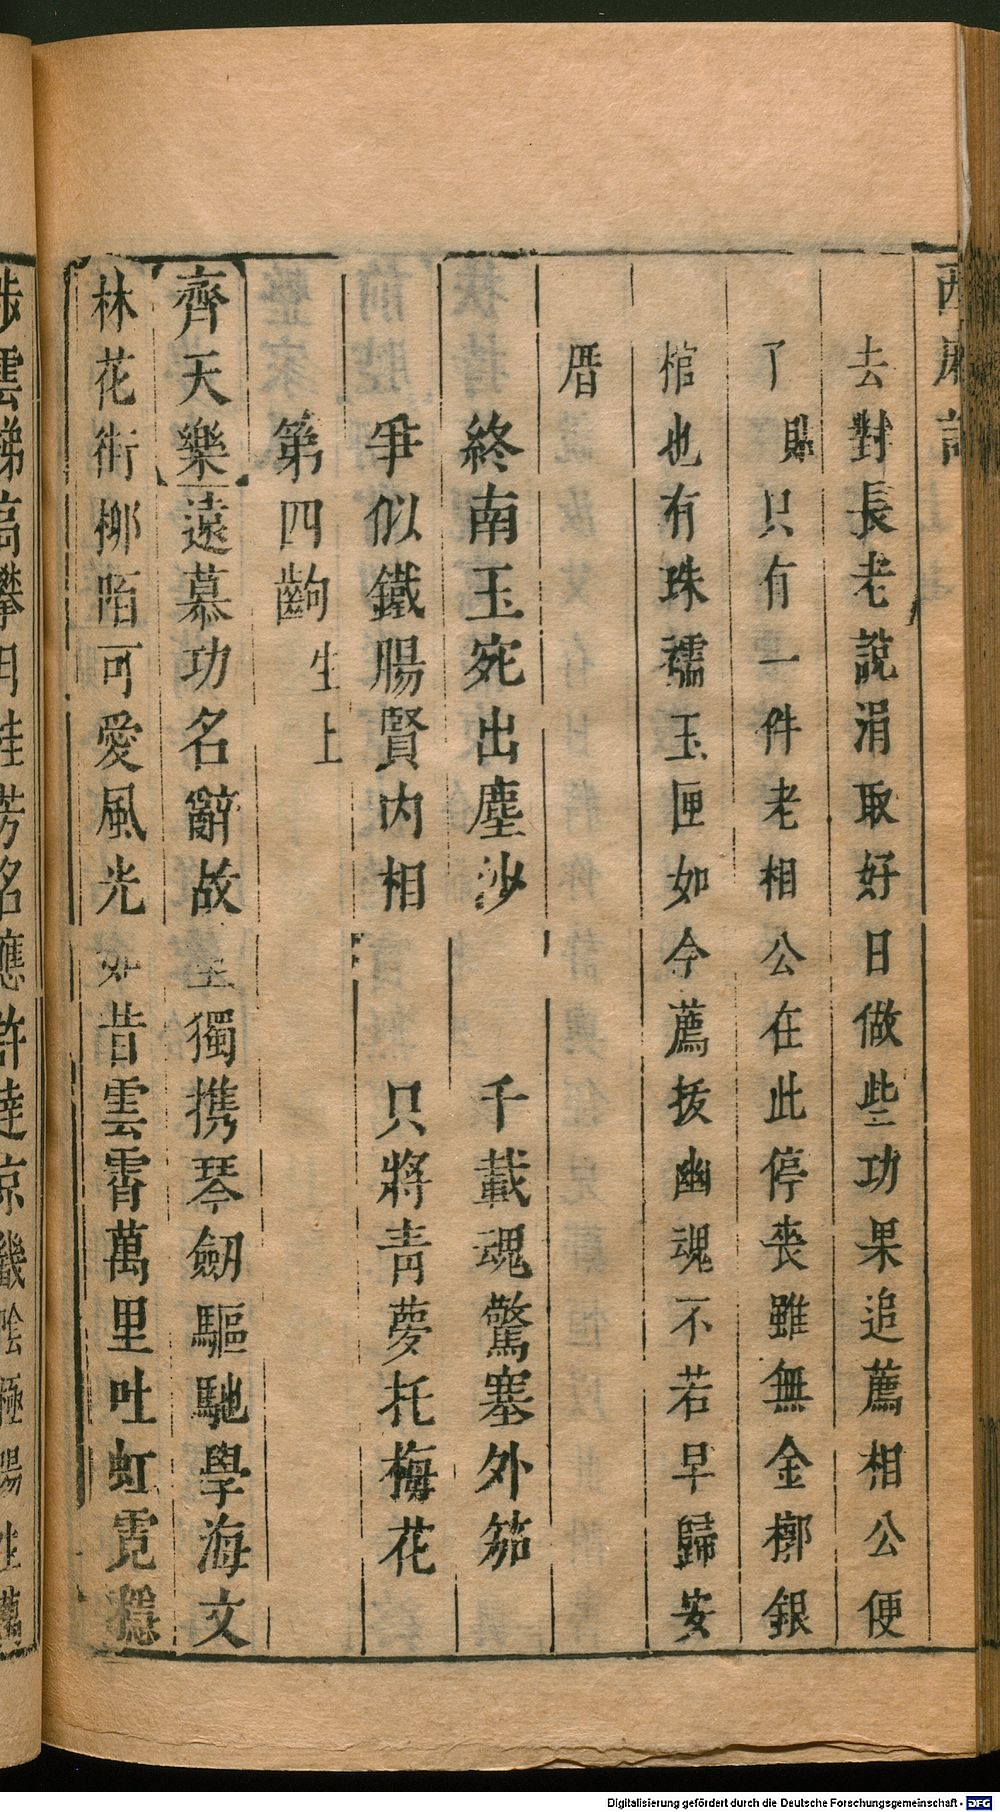 西廂記
去對長老說涓取好日做些功果追薦相公便
了貼只有一件老相公在此停喪雖無金槨銀
棺也有珠襦玉匣如今薦拔幽魂不若早歸安
厝
終南玉宛出塵沙 千載魂驚塞外笳
爭似鐵腸賢內相 只將青夢托梅花
第四齣 生上
齊天樂 遠慕功名辭故里獨携琴劒驅馳學海文
林花街柳陌可愛風光如昔雲霄萬里吐虹霓穩
步雲梯高攀月桂芳名應許達京畿
Digitalisierung gefördert durch die Deutsche Forschungsgemeinschaft - DFG